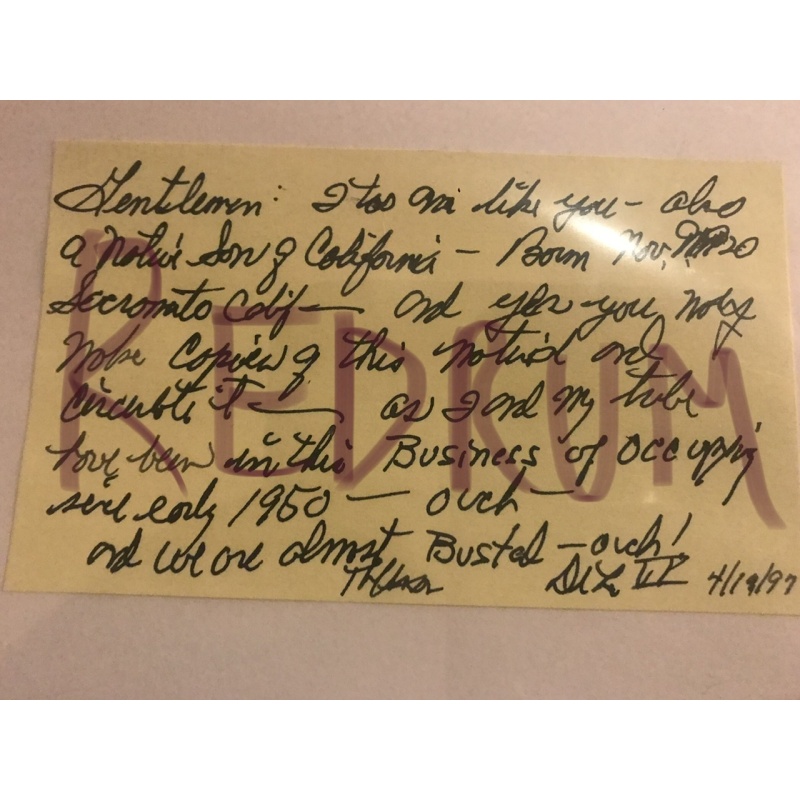 Gentlemen: I too am like you – also
a Native Son of California – Born Nov. 20
Sacramento Calif — and yes you may
make copies of this notice and
circulate it — as I and my tribe
have been in this Business of Occupying
since early 1950 — ouch —
and we are almost Busted – ouch!
4/19/97
REDRUM